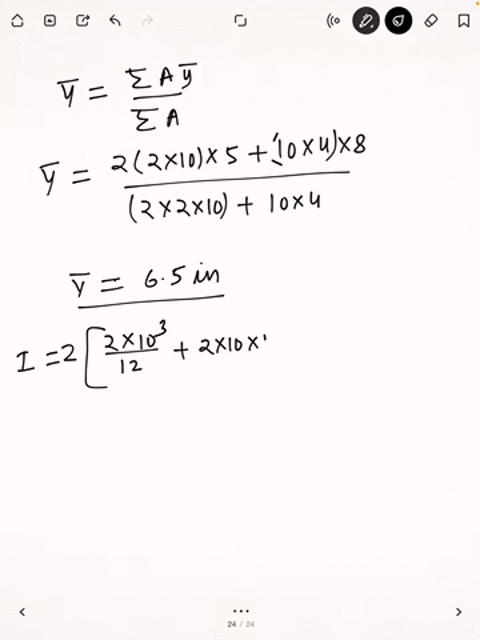 ȳ = ΣAȳ / ΣA
ȳ = 2(2×10)×5 + (10×4)×8 / (2×2×10) + 10×4
ȳ = 6.5 in
I = 2[2×10³/12 + 2×10×
24 / 24